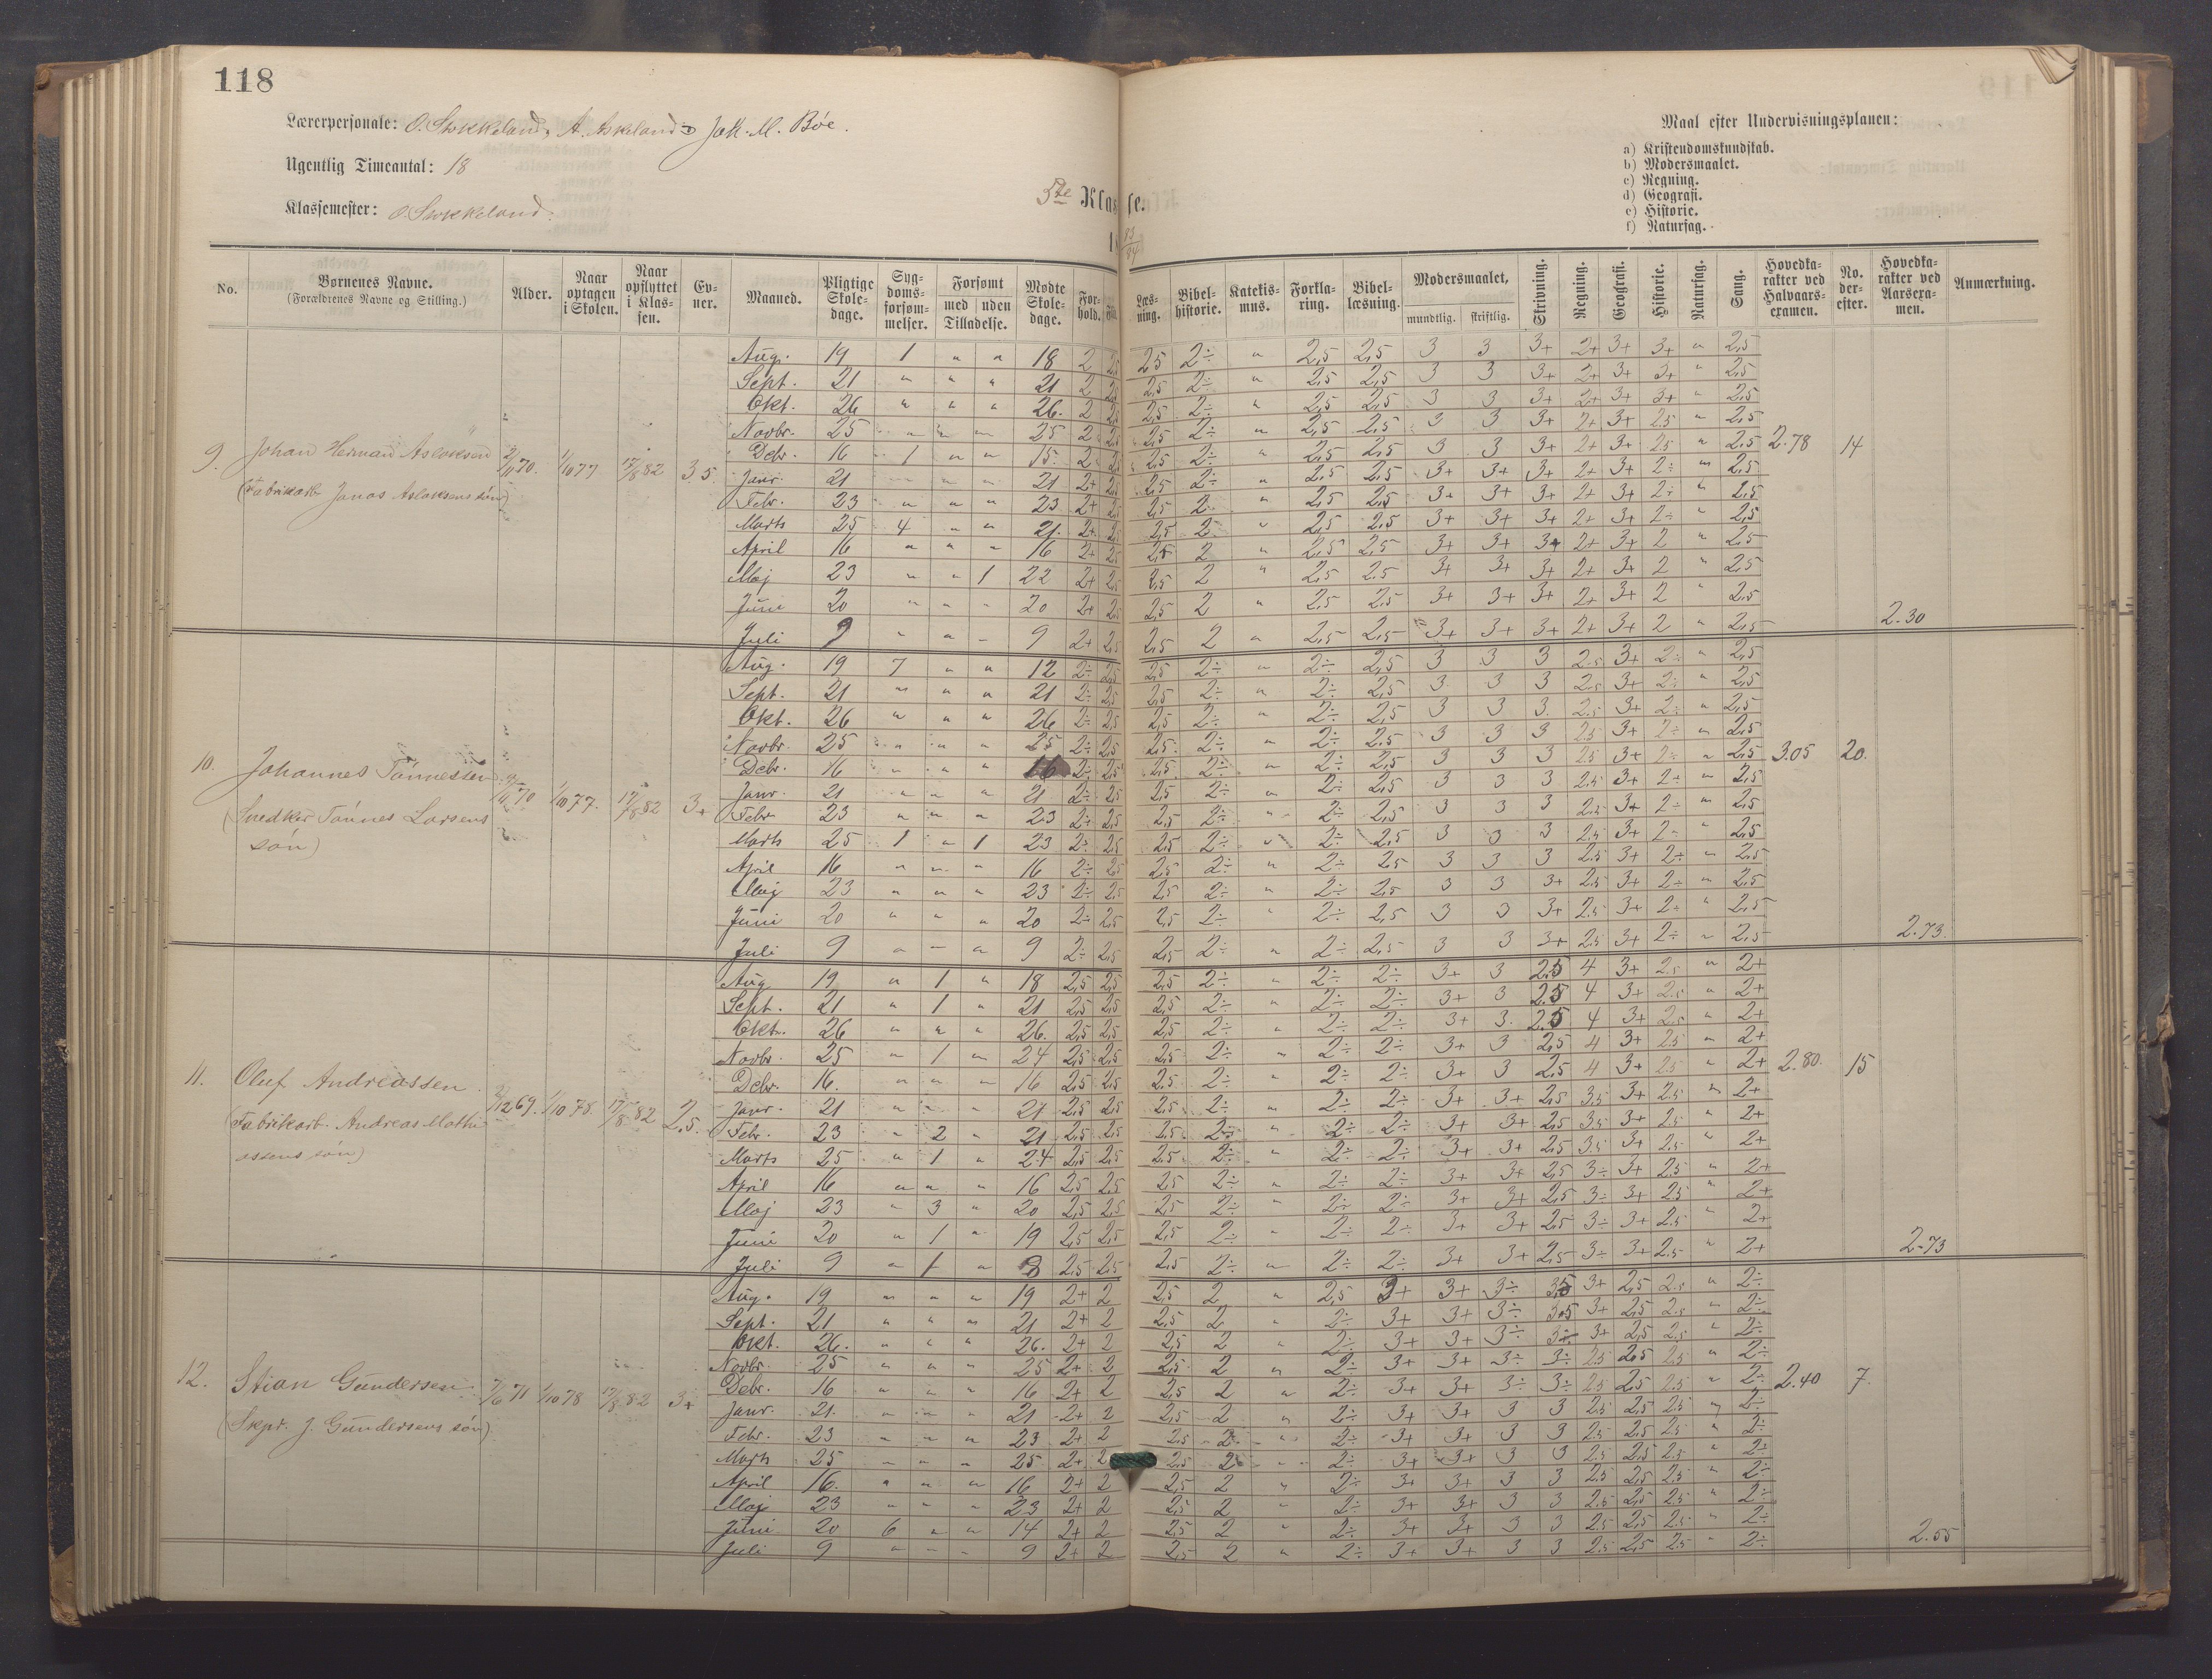 118
Lærerpersonale: O. Stokkeland, A. Askeland & Jak. M. Bøe.
Ugentlig Timeantal: 18
Klassemester: O. Stokkeland.
5te Klasse.
18 83/84
Maal efter Undervisningsplanen:
a) Kristendomskundskab.
b) Modersmaalet.
c) Regning.
d) Geografi.
e) Historie.
f) Naturfag.
No. Børnenes Navne. (Forældrenes Navne og Stilling.) Alder. Naar optagen i Skolen. Naar opflyttet i Klassen. Evner. Maaned. Pligtige Skoledage. Sygdomsforsømmelser. Forsømt med uden Tilladelse. Mødte Skoledage. Forhold. Læsning. Bibelhistorie. Katekismus. Forklaring. Bibellæsning. Modersmaalet, mundtlig. skriftlig. Skrivning. Regning. Geografi. Historie. Naturfag. Sang. Hovedkarakter ved Halvaarsexamen. No. derefter. Hovedkarakter ved Aarsexamen. Anmærkning.
9. Johan Herman Aslaksen 2/11 70. 1/10 77 17/8 82 3.5 2.78 14 2.30
(Fabrikarb. Jonas Aslaksens søn)
Aug. 19 1 " " 18 2 2,5 2,5 2÷ " 2,5 2,5 3 3 3+ 2+ 3+ 3+ " 2,5
Sept. 21 " " " 21 2 2,5 2,5 2÷ " 2,5 2,5 3 3 3+ 2+ 3+ 3+ " 2,5
Okt. 26 " " " 26. 2 2,5 2,5 2÷ " 2,5 2,5 3 3 3+ 2+ 3+ 3+ " 2,5
Novbr. 25 " " " 25 2 2,5 2,5 2÷ " 2,5 2,5 3 3 3+ 2+ 3+ 2.5 " 2,5
Debr. 16 1 " " 15. 2 2,5 2,5 2÷ " 2,5 2,5 3 3 3+ 2+ 3+ 2.5 " 2,5
Janr. 21 " " " 21 2+ 2,5 2,5 2÷ " 2,5 2,5 3+ 3+ 3+ 2+ 3+ 2÷ " 2,5
Febr. 23 " " " 23 2+ 2,5 2,5 2 " 2,5 2,5 3+ 3+ 3+ 2+ 3+ 2÷ " 2,5
Marts 25 4 " " 21. 2+ 2,5 2,5 2 " 2,5 2,5 3+ 3+ 3+ 2+ 3+ 2÷ " 2,5
April 16 " " " 16 2+ 2,5 2,5 2 " 2,5 2,5 3+ 3+ 3+ 2+ 3+ 2 " 2,5
Maj 23 " " 1 22 2+ 2,5 2,5 2 " 2,5 2,5 3+ 3+ 3+ 2+ 3+ 2 " 2,5
Juni 20 " " " 20 2+ 2,5 2,5 2 " 2,5 2,5 3+ 3+ 3+ 2+ 3+ 2 " 2,5
Juli 9 " " " 9 2+ 2,5 2,5 2 " 2,5 2,5 3+ 3+ 3+ 2+ 3+ 2 " 2,5
10. Johannes Tønnessen 70 1/10 77. 17/8 82 3+ 3.05 20. 2.73.
(Snedker Tønnes Larsens
søn)
Aug. 19 7 " " 12 2÷ 2,5 2,5 2÷ " 2÷ 2,5 3 3 3 2.5 3+ 2÷ " 2,5
Sept. 21 " " " 21 2÷ 2,5 2,5 2÷ " 2÷ 2,5 3 3 3 2.5 3+ 2÷ " 2,5
Okt. 26 " " " 26 2÷ 2,5 2,5 2÷ " 2÷ 2,5 3 3 3 2.5 3+ 2÷ " 2,5
Novbr. 25 " " " 25 2÷ 2,5 2,5 2÷ " 2÷ 2,5 3 3 3 2.5 3+ 2÷ " 2,5
Debr. 16 " " " 16 2÷ 2,5 2,5 2÷ " 2÷ 2,5 3 3 3 2.5 3+ 2÷ " 2,5
Janr. 21 " " " 21 2÷ 2,5 2,5 2÷ " 2÷ 2,5 3 3 3 2.5 3+ 2÷ " 2,5
Febr. 23 " " " 23 2÷ 2,5 2,5 2÷ " 2÷ 2,5 3 3 3 2.5 3+ 2÷ " 2,5
Marts 25 1 " 1 23 2÷ 2,5 2,5 2÷ " 2÷ 2,5 3 3 3 2.5 3+ 2÷ " 2,5
April 16 " " " 16 2÷ 2,5 2,5 2÷ " 2÷ 2,5 3 3 3 2.5 3+ 2÷ " 2,5
Maj 23 " " " 23 2÷ 2,5 2,5 2÷ " 2÷ 2,5 3 3 3+ 2.5 3+ 2÷ " 2,5
Juni 20 " " " 20 2÷ 2,5 2,5 2÷ " 2÷ 2,5 3 3 3+ 2.5 3+ 2÷ " 2,5
Juli 9 " " " 9 2÷ 2,5 2,5 2÷ " 2÷ 2,5 3 3 3+ 2.5 3+ 2÷ " 2,5
11. Oluf Andreassen 2/12 69. 1/10 78. 17/8 82 2,5. 2.80. 15 2.73
(Fabrikarb. Andreas Mathi
assens søn)
Aug. 19 " 1 " 18 2,5 2,5 2,5 2÷ " 2÷ 2÷ 3+ 3 2.5 4 3+ 2.5 " 2+
Sept. 21 " 1 " 21 2,5 2,5 2,5 2÷ " 2÷ 2÷ 3+ 3 2.5 4 3+ 2.5 " 2+
Okt. 26 " " " 26. 2,5 2,5 2,5 2÷ " 2÷ 2÷ 3+ 3. 2.5 4 3+ 2.5 " 2+
Novbr. 25 " 1 " 24 2,5 2,5 2,5 2÷ " 2÷ 2÷ 3+ 3 2,5 4 3+ 2.5 " 2+
Debr. 16. " " " 16 2,5 2,5 2,5 2÷ " 2÷ 2÷ 3+ 3 2,5 4 3+ 2.5 " 2+
Janr. 21 " " " 21 2,5 2,5 2,5 2÷ " 2÷ 2÷ 3+ 3+ 2,5 3.5 3+ 2.5 " 2+
Febr. 23 " 2 " 21 2,5 2,5 2,5 2÷ " 2÷ 2÷ 3+ 3+ 2,5 3.5 3+ 2.5 " 2+
Marts 25 " 1 " 24 2,5 2,5 2,5 2÷ " 2÷ 2÷ 3+ 3+ 2,5 3.5 3+ 2.5 " 2+
April 16 " " " 16 2,5 2,5 2,5 2÷ " 2÷ 2÷ 3+ 3+ 2,5 3÷ 3+ 2.5 " 2+
Maj 23 " 3 " 20 2,5 2,5 2,5 2÷ " 2÷ 2÷ 3+ 3+ 2,5 3÷ 3+ 2.5 " 2+
Juni 20 " 1 " 19 2,5 2,5 2,5 2÷ " 2÷ 2÷ 3+ 3+ 2,5 3÷ 3+ 2.5 " 2+
Juli 9 " 1 " 8 2,5 2,5 2,5 2÷ " 2÷ 2÷ 3+ 3+ 2,5 3÷ 3+ 2.5 " 2+
12. Stian Gundersen 7/6 71 1/10 78 17/8 82 3+ 2.40 7. 2.55
(Skpr. J. Gundersens søn)
Aug. 19 " " " 19 2+ 2 2,5 2 " 2,5 3+ 3+ 3÷ 3,5 3+ 2,5 2.5 " 2÷
Sept. 21 " " " 21 2+ 2 2,5 2 " 2÷ 3+ 3+ 3÷ 3.5 3+ 2,5 2.5 " 2÷
Okt. 26. " " " 26. 2+ 2 2,5 2 " 2÷ 3+ 3+ 3÷ 3÷ 3+ 2,5 2.5 " 2÷
Novbr. 25 " " " 25 2+ 2 2,5 2 " 2÷ 3+ 3+ 3÷ 3÷ 2.5 2,5 2.5 " 2÷
Debr. 16 " " " 16 2+ 2 2,5 2 " 2÷ 3+ 3+ 3÷ 3÷ 2.5 2,5 2.5 " 2÷
Janr. 21. " " " 21 2+ 2 2,5 2 " 2÷ 3+ 3+ 3 3 2.5 2,5 2.5 " 2÷
Febr. 23 " " " 23 2+ 2 2,5 2 " 2÷ 3+ 3+ 3 3 2.5 2,5 2.5 " 2÷
Marts 25 " " " 25 2+ 2 2,5 2 " 2÷ 3+ 3+ 3 3 2.5 2,5 2.5 " 2÷
April 16. " " " 16 2+ 2 2,5 2 " 2÷ 3+ 3+ 3 3 2.5 2,5 2.5 " 2÷
Maj 23 " " " 23 2+ 2 2,5 2 " 2÷ 3+ 3+ 3 3 2.5 2,5 2.5 " 2÷
Juni 20 6 " " 14 2+ 2 2,5 2 " 2÷ 3+ 3+ 3 3 2.5 2,5 2.5 " 2÷
Juli 9 " " " 9 2+ 2 2,5 2 " 2÷ 3+ 3+ 3 3 2.5 2,5 2.5 " 2÷